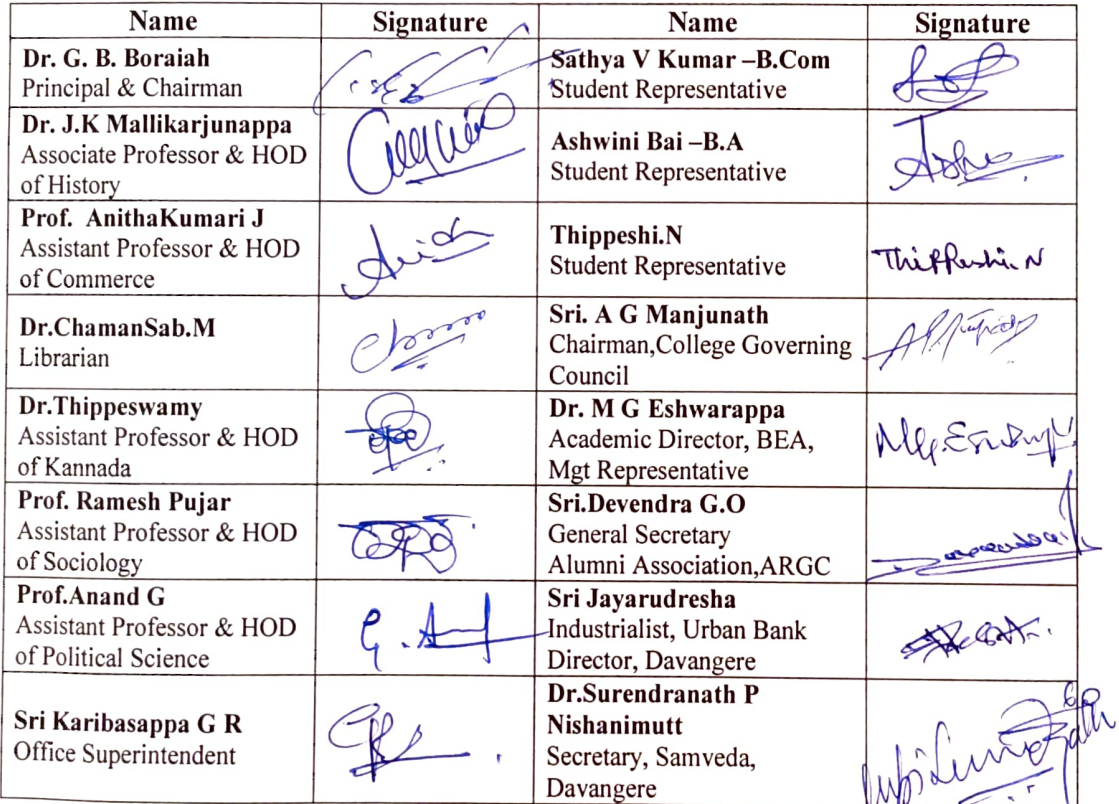 Name Signature Name Signature
Dr. G. B. Boraiah
Principal & Chairman
Sathya V Kumar –B.Com
Student Representative
Dr. J.K Mallikarjunappa
Associate Professor & HOD
of History
Ashwini Bai –B.A
Student Representative
Prof. AnithaKumari J
Assistant Professor & HOD
of Commerce
Thippeshi.N
Student Representative
Thippeshi. N
Dr.ChamanSab.M
Librarian
Sri. A G Manjunath
Chairman,College Governing
Council
Dr.Thippeswamy
Assistant Professor & HOD
of Kannada
Dr. M G Eshwarappa
Academic Director, BEA,
Mgt Representative
Prof. Ramesh Pujar
Assistant Professor & HOD
of Sociology
Sri.Devendra G.O
General Secretary
Alumni Association,ARGC
Prof.Anand G
Assistant Professor & HOD
of Political Science
Sri Jayarudresha
Industrialist, Urban Bank
Director, Davangere
Sri Karibasappa G R
Office Superintendent
Dr.Surendranath P
Nishanimutt
Secretary, Samveda,
Davangere